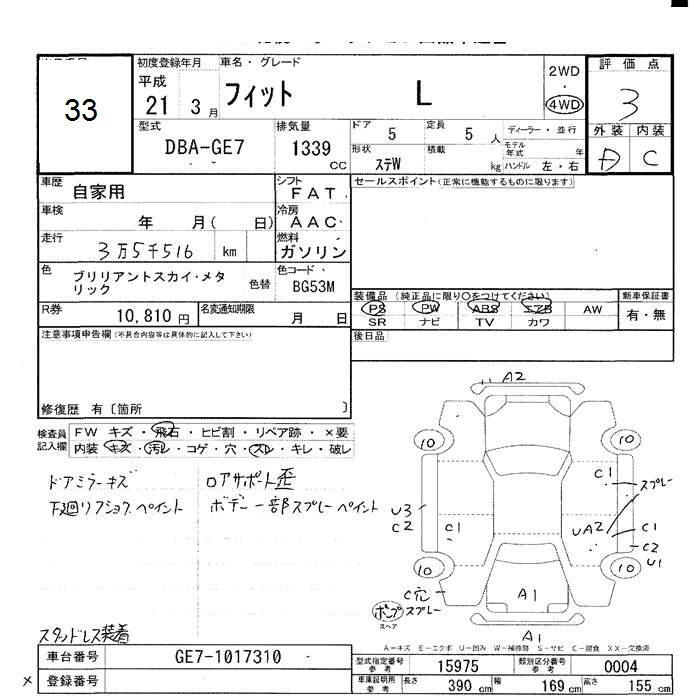 33
初度登録年月
平成
21 3 月
車名・グレード
フィット L
2WD
・
4WD
評価点
3
外装 内装
D C
型式
DBA-GE7
排気量
1339
CC
ドア 5
定員 5 人
ディーラー・並行
モデル年式 年
形状 ステW
積載 kg
ハンドル 左・右
車歴 自家用
シフト FAT
セールスポイント(正常に機能するものに限ります)
車検 年 月( 日)
冷房 AAC
走行 3万5千516 km
燃料 ガソリン
色 ブリリアントスカイ・メタリック
色替
色コード BG53M
R券 10,810 円
名変通知期限 月 日
装備品(純正品に限り〇をつけてください)
PS PW ABS エアB AW
SR ナビ TV カワ
新車保証書
有・無
後日品
注意事項申告欄(不具合内容等は具体的に記入して下さい)
修復歴 有〔箇所 〕
検査員記入欄
FW キズ・飛石・ヒビ割・リペア跡・×要
内装・キズ・汚レ・コゲ・穴・スレ・キレ・破レ
ドアミラーキズ
ロアサポート歪
下廻リフショク ペイント
ボデー一部スプレーペイント
スタンドレス装着
A2
10 10
C1 スプレー
U3
C2
C1
UA2 C1
C2
U1
10 10
C穴
スプレー
A1
ポンプ
スペア
A1
A-キズ E-エクボ U-凹み W-補修跡 S-サビ C-腐食 XX-交換済
車台番号 GE7-1017310
× 登録番号
型式指定番号 参考 15975
類別区分番号 参考 0004
車庫証明用 参考 長さ 390 cm 幅 169 cm 高さ 155 cm